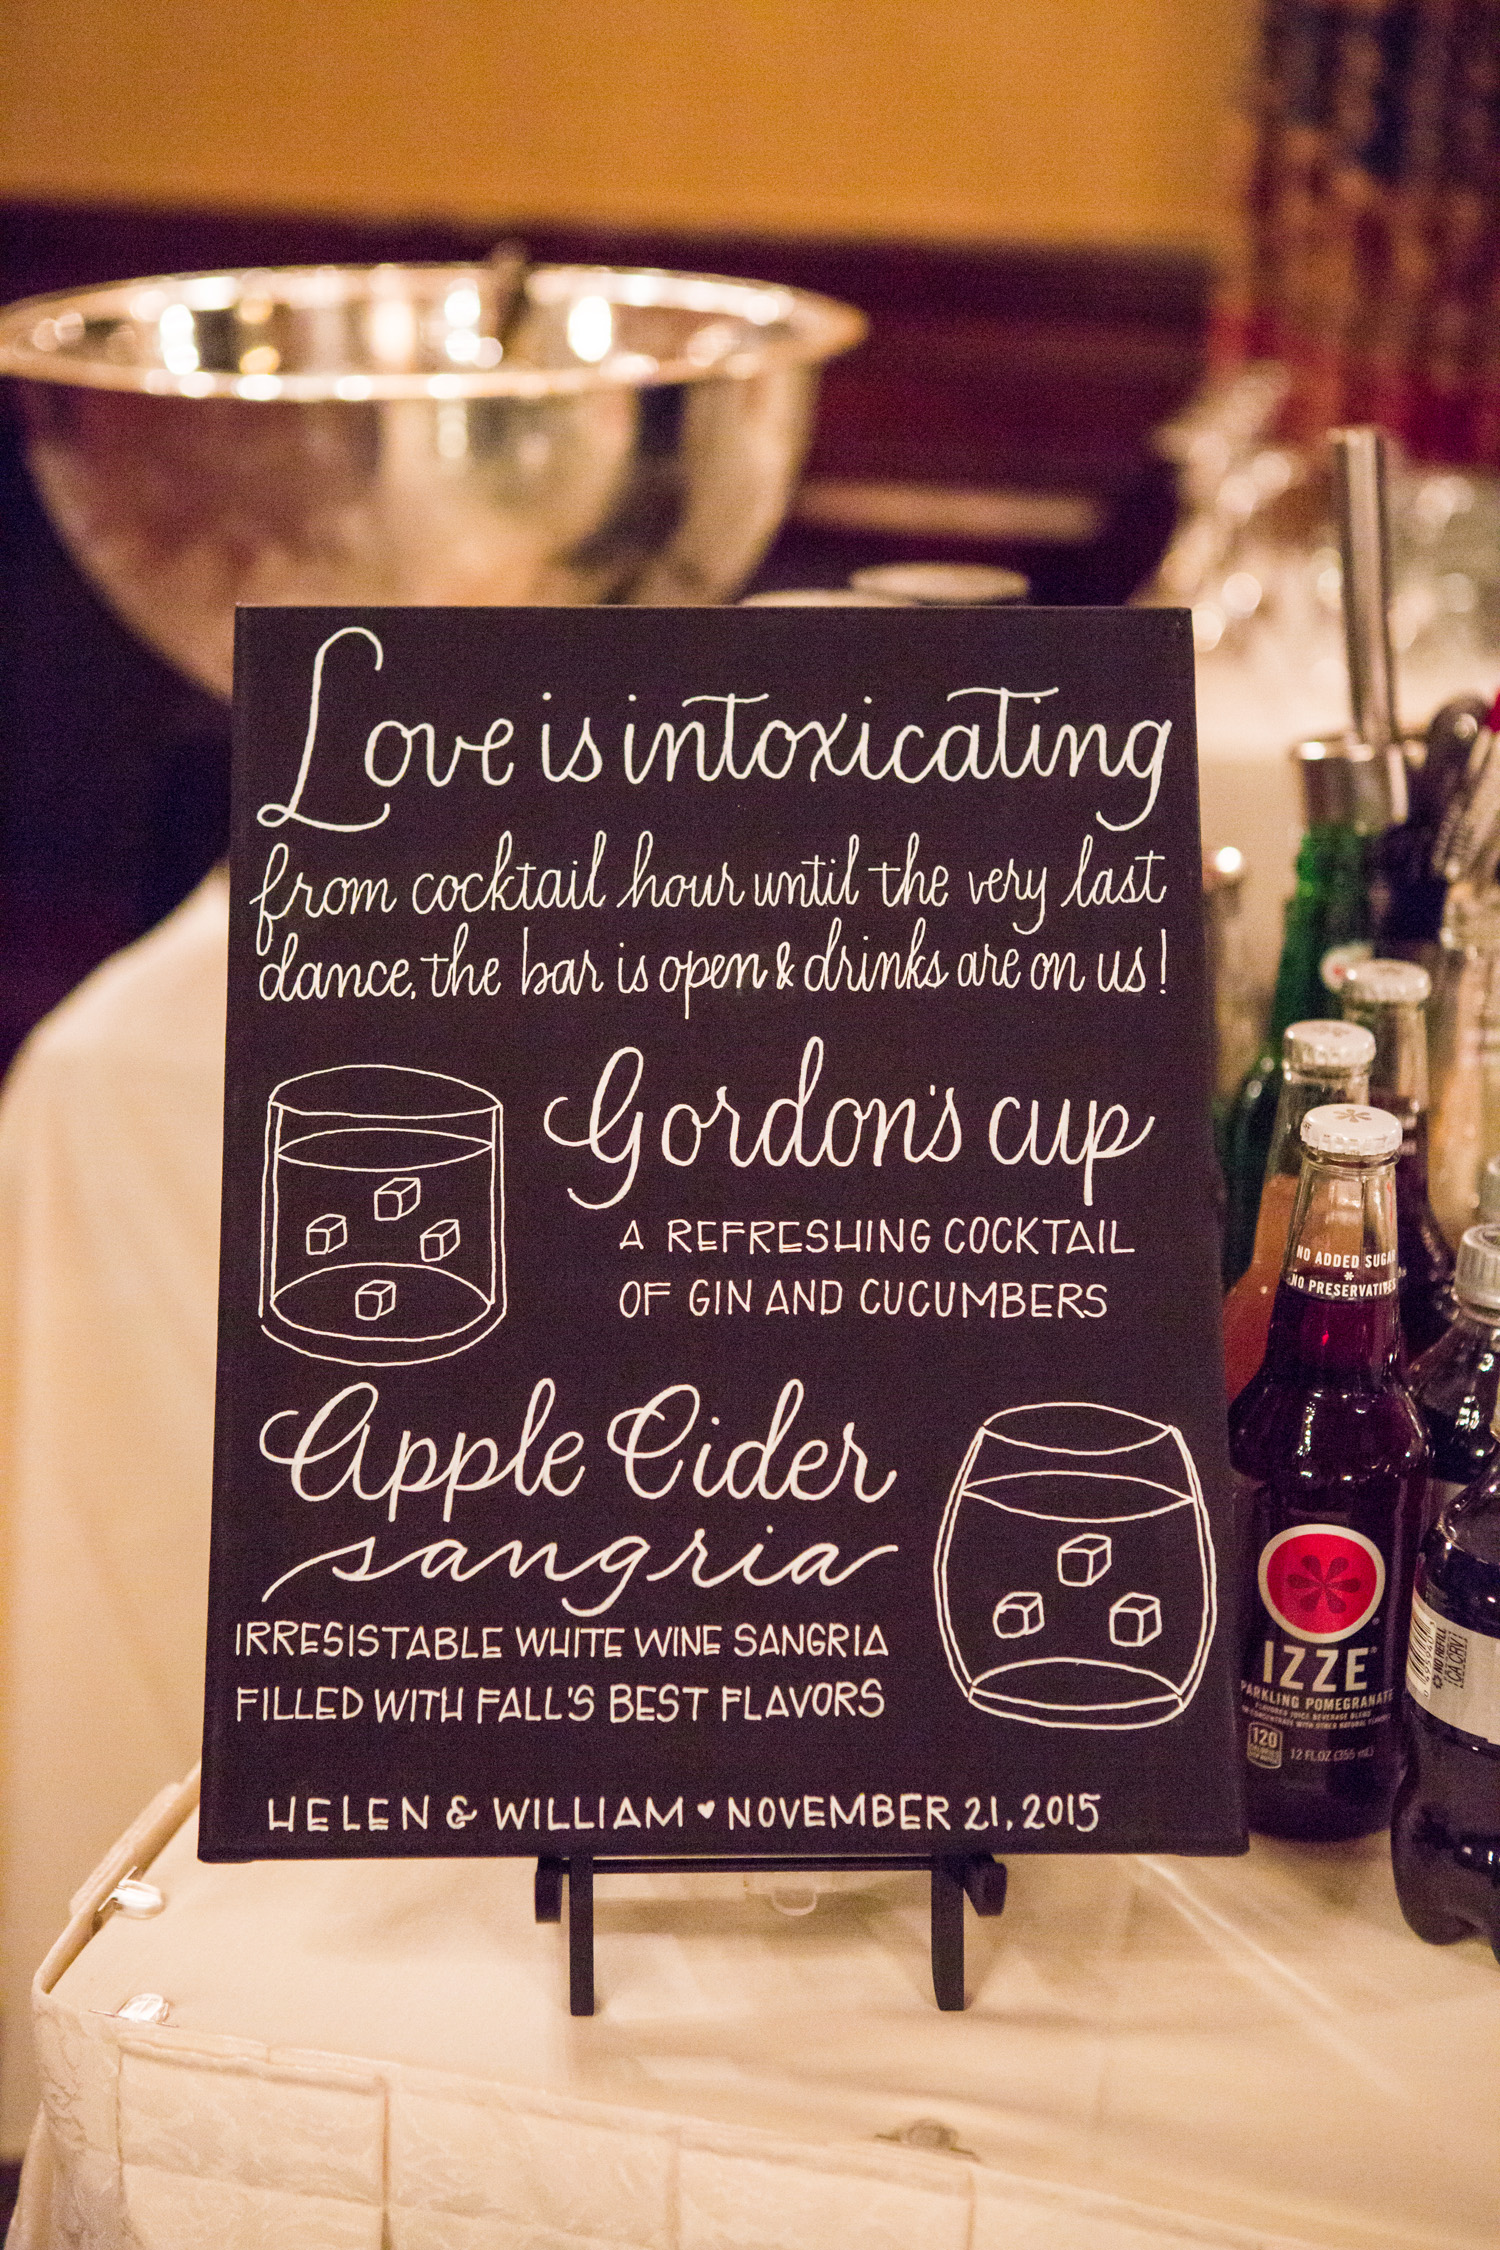 Love is intoxicating
from cocktail hour until the very last
dance, the bar is open & drinks are on us!
Gordon's cup
A REFRESHING COCKTAIL
OF GIN AND CUCUMBERS
Apple Cider
sangria
IRRESISTABLE WHITE WINE SANGRIA
FILLED WITH FALL'S BEST FLAVORS
HELEN & WILLIAM ♥ NOVEMBER 21, 2015
NO ADDED SUGAR
*
NO PRESERVATIVES
IZZE
SPARKLING POMEGRANATE
120
12 FL OZ (355 mL)
NO REFILL